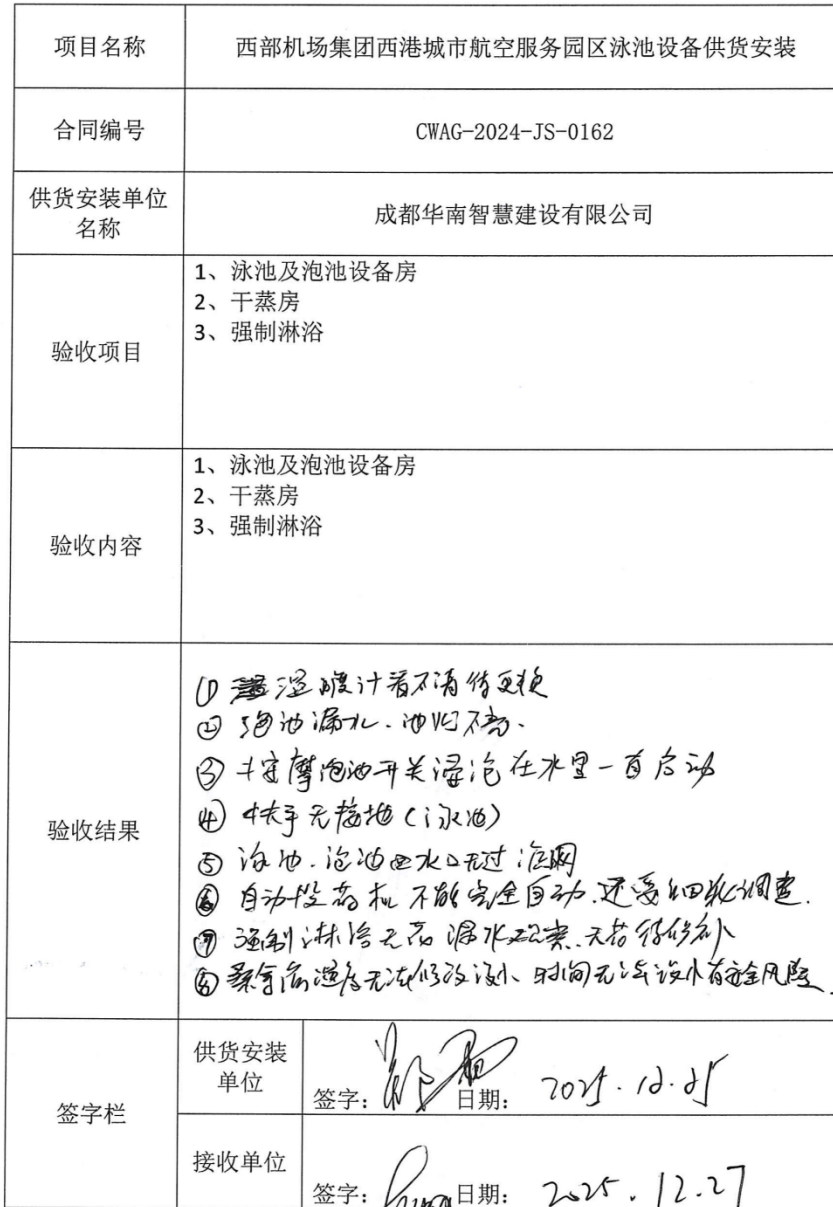 项目名称 西部机场集团西港城市航空服务园区泳池设备供货安装
合同编号 CWAG-2024-JS-0162
供货安装单位
名称
成都华南智慧建设有限公司
验收项目
1、泳池及泡池设备房
2、干蒸房
3、强制淋浴
验收内容
1、泳池及泡池设备房
2、干蒸房
3、强制淋浴
验收结果
① 湿度计看不清待更换
② 泡池漏水.
③ 摩泡池开关浸泡在水里一直启动
④ 扶手无接地(泳池)
⑤ 泳池.泡池出水口无过滤网
⑥ 自动投药机 不能完全自动.还要 调查.
⑦ 强制淋浴无 漏水现象.
⑧ 桑拿房温度无法修改 时间无法 有安全风险.
签字栏
供货安装
单位
签字: 日期: 2025.12.25
接收单位
签字: 日期: 2025.12.27